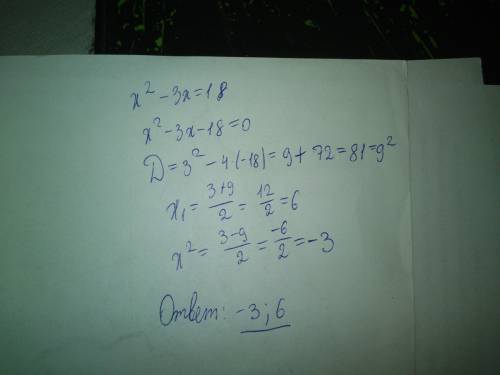 x² - 3x = 18
x² - 3x - 18 = 0
D = 3² - 4·(-18) = 9 + 72 = 81 = 9²
x₁ = (3+9)/2 = 12/2 = 6
x² = (3-9)/2 = -6/2 = -3
Ответ: -3; 6